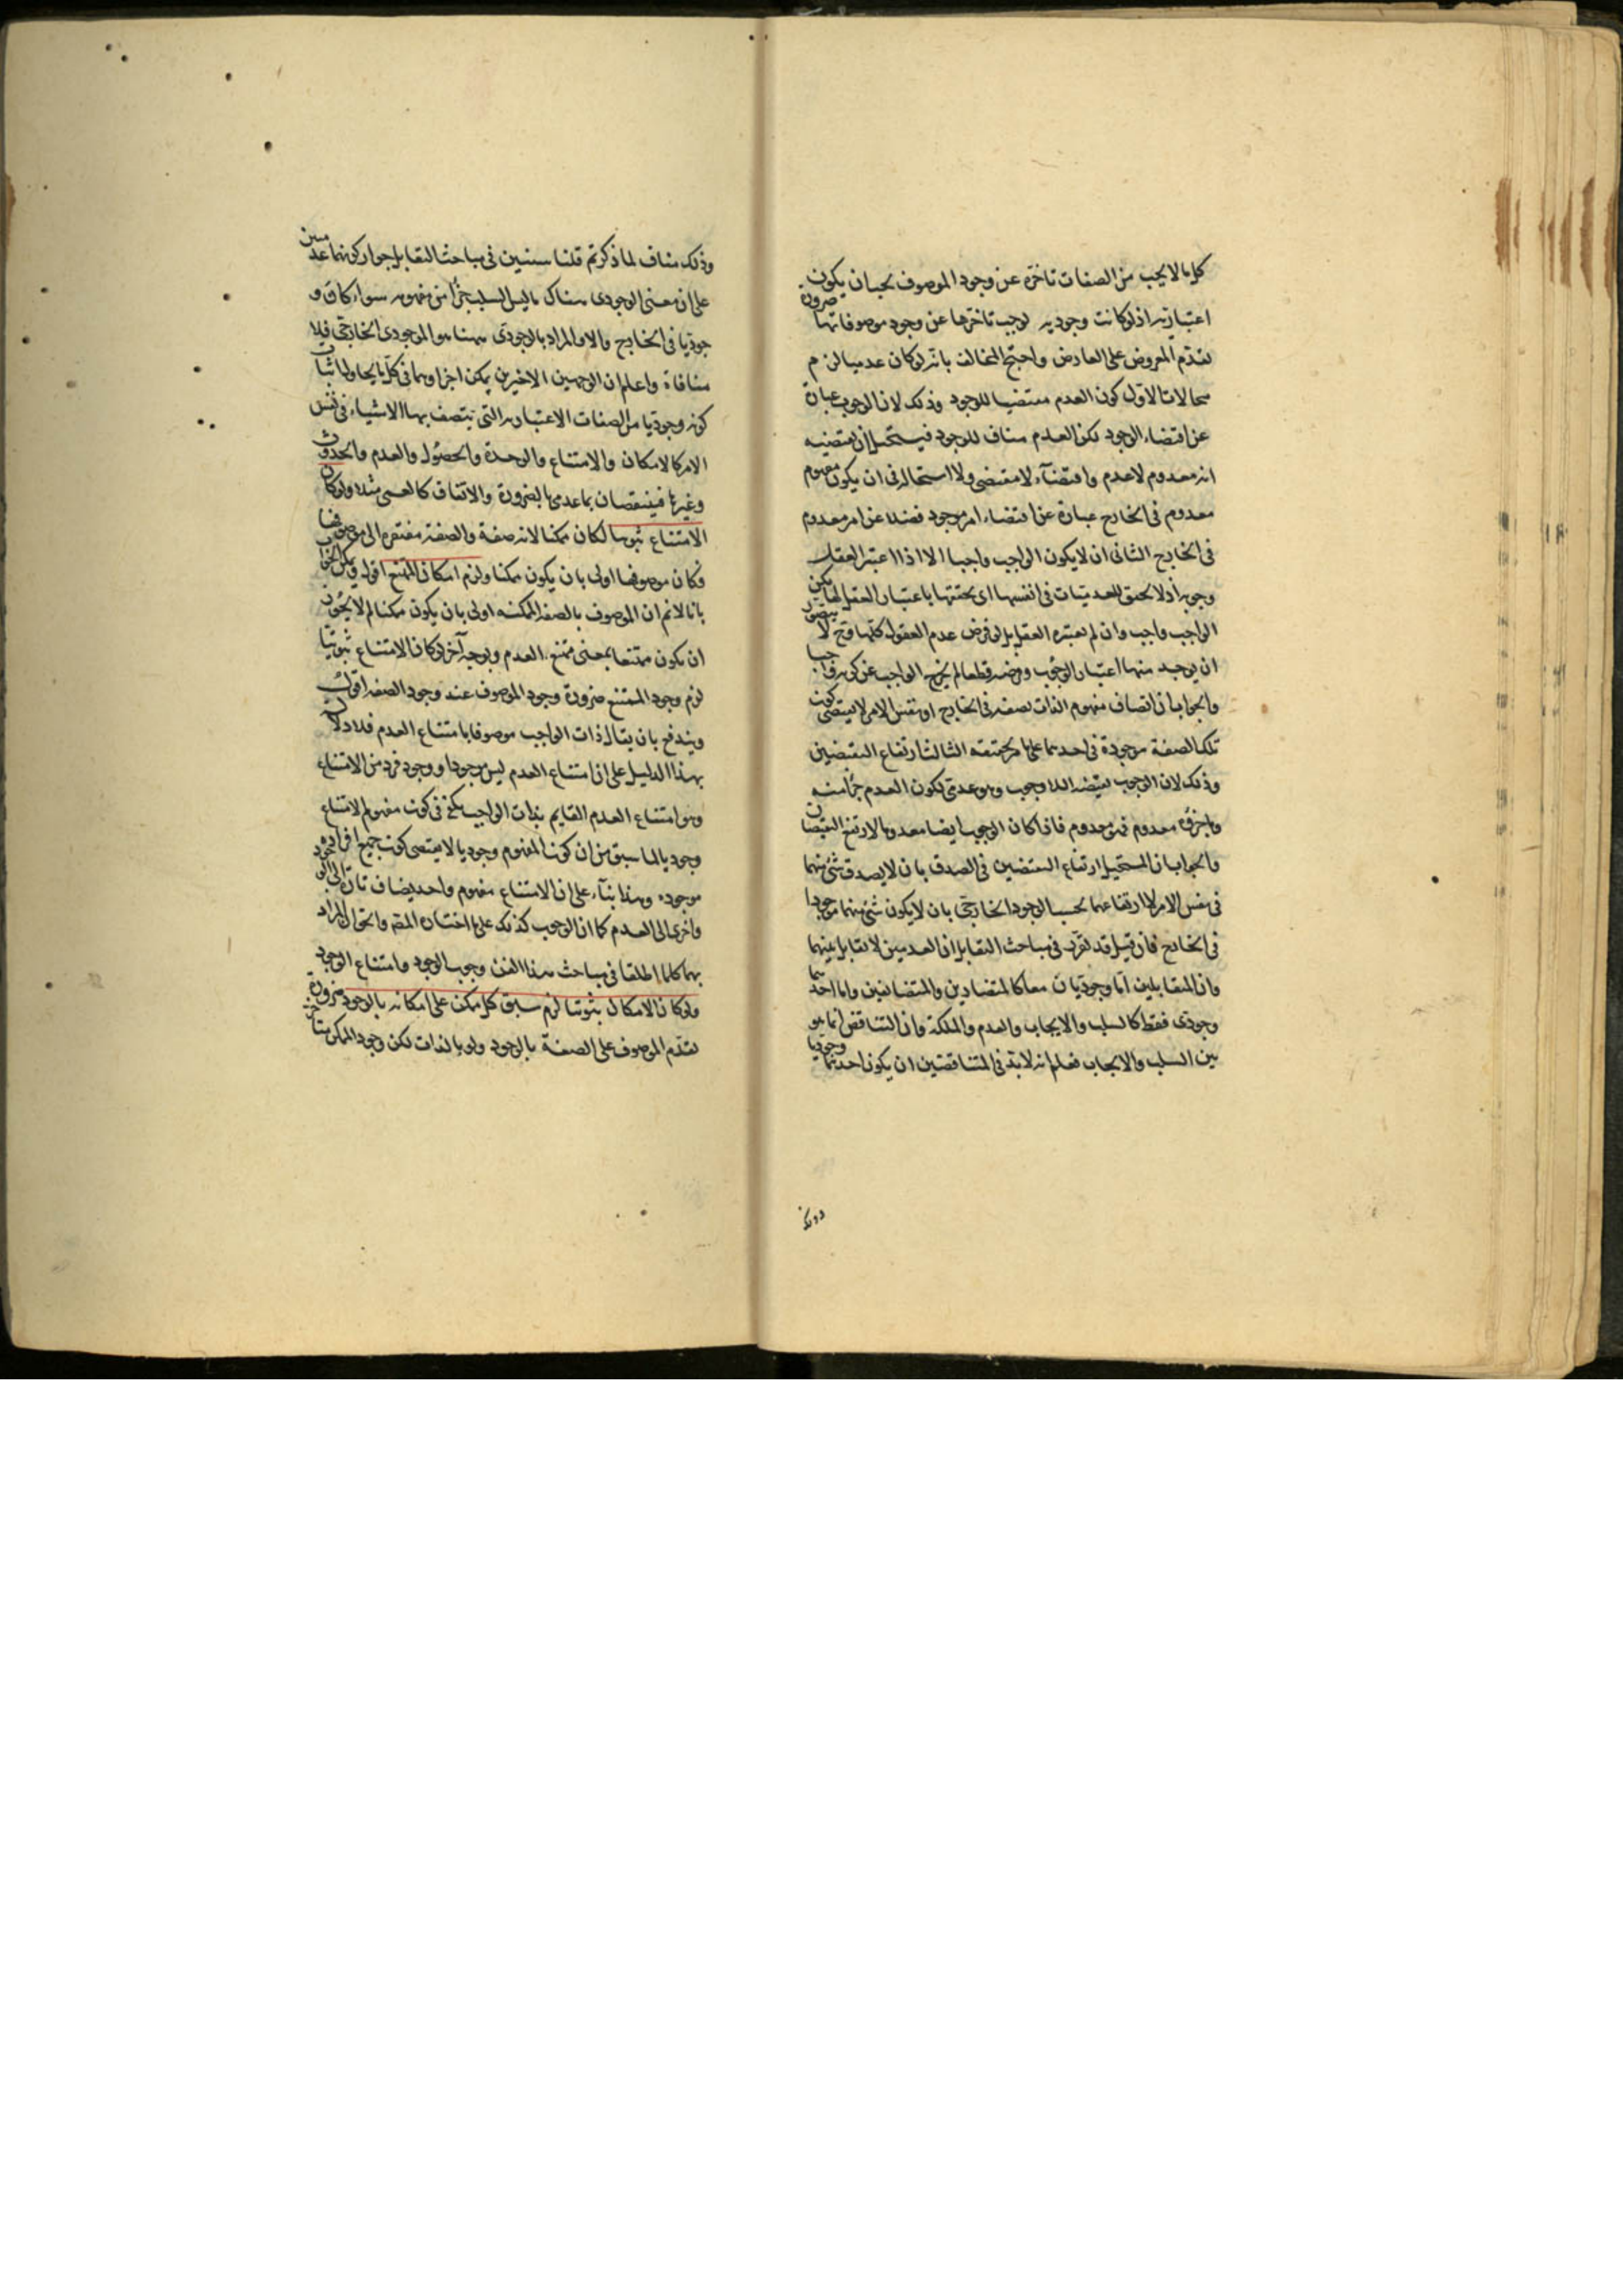 كل ما لا يجب من الصفات تأخره عن وجود الموصوف يجب ان يكون
اعتبارية اذ لو كانت وجودية لوجب تأخرها عن وجود موصوفاتها ضرورة
تقدم المعروض على العارض واحتج المخالف بانه لو كان عدميا لزم
محالات الاول كون العدم مقتضيا للوجود وذلك لان الوجوب عبارة
عن اقتضاء الوجود لكن العدم مناف للوجود فيستحيل ان يقتضيه
انه معدوم لا عدم واقتضاء لا مقتضى ولا استحالة فى ان يكون مفهوم
معدوم فى الخارج عبارة عن اقتضاء امر موجود فضلا عن امر معدوم
فى الخارج الثانى ان لا يكون الواجب واجبا الا اذا اعتبر العقل
وجوبه اذ لا تحقق للعدميات فى انفسها اى تحققها باعتبار العقل لها لكن
الواجب واجب وان لم يعتبره العقل بل لو فرض عدم العقول كلها وح لا يتصور
ان يوجد منها اعتبار الوجوب وفرضه قطعا لم يخرج الواجب عن كونه واجبا
والجواب ان اتصاف مفهوم الذات بصفة فى الخارج او نفس الامر لا يقتضى كون
تلك الصفة موجودة فى احدهما على ما مر تحقيقه الثالث ارتفاع النقيضين
وذلك لان الوجوب نقيضه اللاوجوب وهو عدمى لكون العدم جزأ منه
وما جزؤه معدوم فهو معدوم فاذا كان الوجوب ايضا معدوما لارتفع النقيضان
والجواب ان المستحيل ارتفاع النقيضين فى الصدق بان لا يصدق شئ منهما
فى نفس الامر لا ارتفاعهما بحسب الوجود الخارجى بان لا يكون شئ منهما موجودا
فى الخارج فان قيل قد تقرر فى مباحث التقابل ان العدميين لا تقابل بينهما
وان المتقابلين اما وجوديان معا كالمتضادين والمتضائفين واما احدهما
وجودى فقط كالسلب والايجاب والعدم والملكة وان التناقض انما هو
بين السلب والايجاب فعلم انه لا بد فى المتناقضين ان يكون احدهما وجوديا
وذلك
وذلك مناف لما ذكرتم قلنا سنبين فى مباحث التقابل جواز كونهما عدميين
على ان معنى الوجودى هناك ما ليس السلب جزأ من مفهومه سواء كان و
جوديا فى الخارج والا والمراد بالوجودى ههنا هو الموجودى الخارجى فلا
منافاة واعلم ان الوجهين الاخيرين يمكن اجراؤهما فى كل ما يحاول اثبات
كونه وجوديا من الصفات الاعتبارية التى يتصف بها الاشياء فى نفس
الامر كالامكان والامتناع والوحدة والحصول والعدم والحدوث
وغيرها فينتقضان بما عدمى بالضرورة والاتفاق كالعمى مثلا ولو كان
الامتناع ثبوتيا لكان ممكنا لانه صفة والصفة مفتقرة الى موصوفها
فكان موصوفها اولى بان يكون ممكنا ولزم امكان الممتنع اقول ويمكن الجواب
بانا لا نم ان الموصوف بالصفة الممكنة اولى بان يكون ممكنا لم لا يجوز
ان يكون ممتنعا بمعنى ممتنع العدم وبوجه آخر لو كان الامتناع ثبوتيا
لزم وجود الممتنع ضرورة وجود الموصوف عند وجود الصفة اقول
ويندفع بان يقال ذات الواجب موصوفا بامتناع العدم فلا دلالة
بهذا الدليل على ان امتناع العدم ليس موجودا ووجود فرد من الامتناع
وهو امتناع العدم القايم بذات الواجب يكفى فى كون مفهوم الامتناع
وجوديا لما سبق من ان كون المفهوم وجوديا لا يقتضى كون جميع افراده
موجوده وهذا بناء على ان الامتناع مفهوم واحد يضاف تارة الى الوجود
واخرى الى العدم كما ان الوجوب كذلك على ما اختاره المص والحق ان المراد
بهما كلما اطلقا فى مباحث هذا الفن وجوب الوجود وامتناع الوجود
ولو كان الامكان ثبوتيا لزم سبق كل ممكن على امكانه بالوجود ضرورة
تقدم الموصوف على الصفة بالوجود ولو بالذات لكن وجود الممكن متأخر